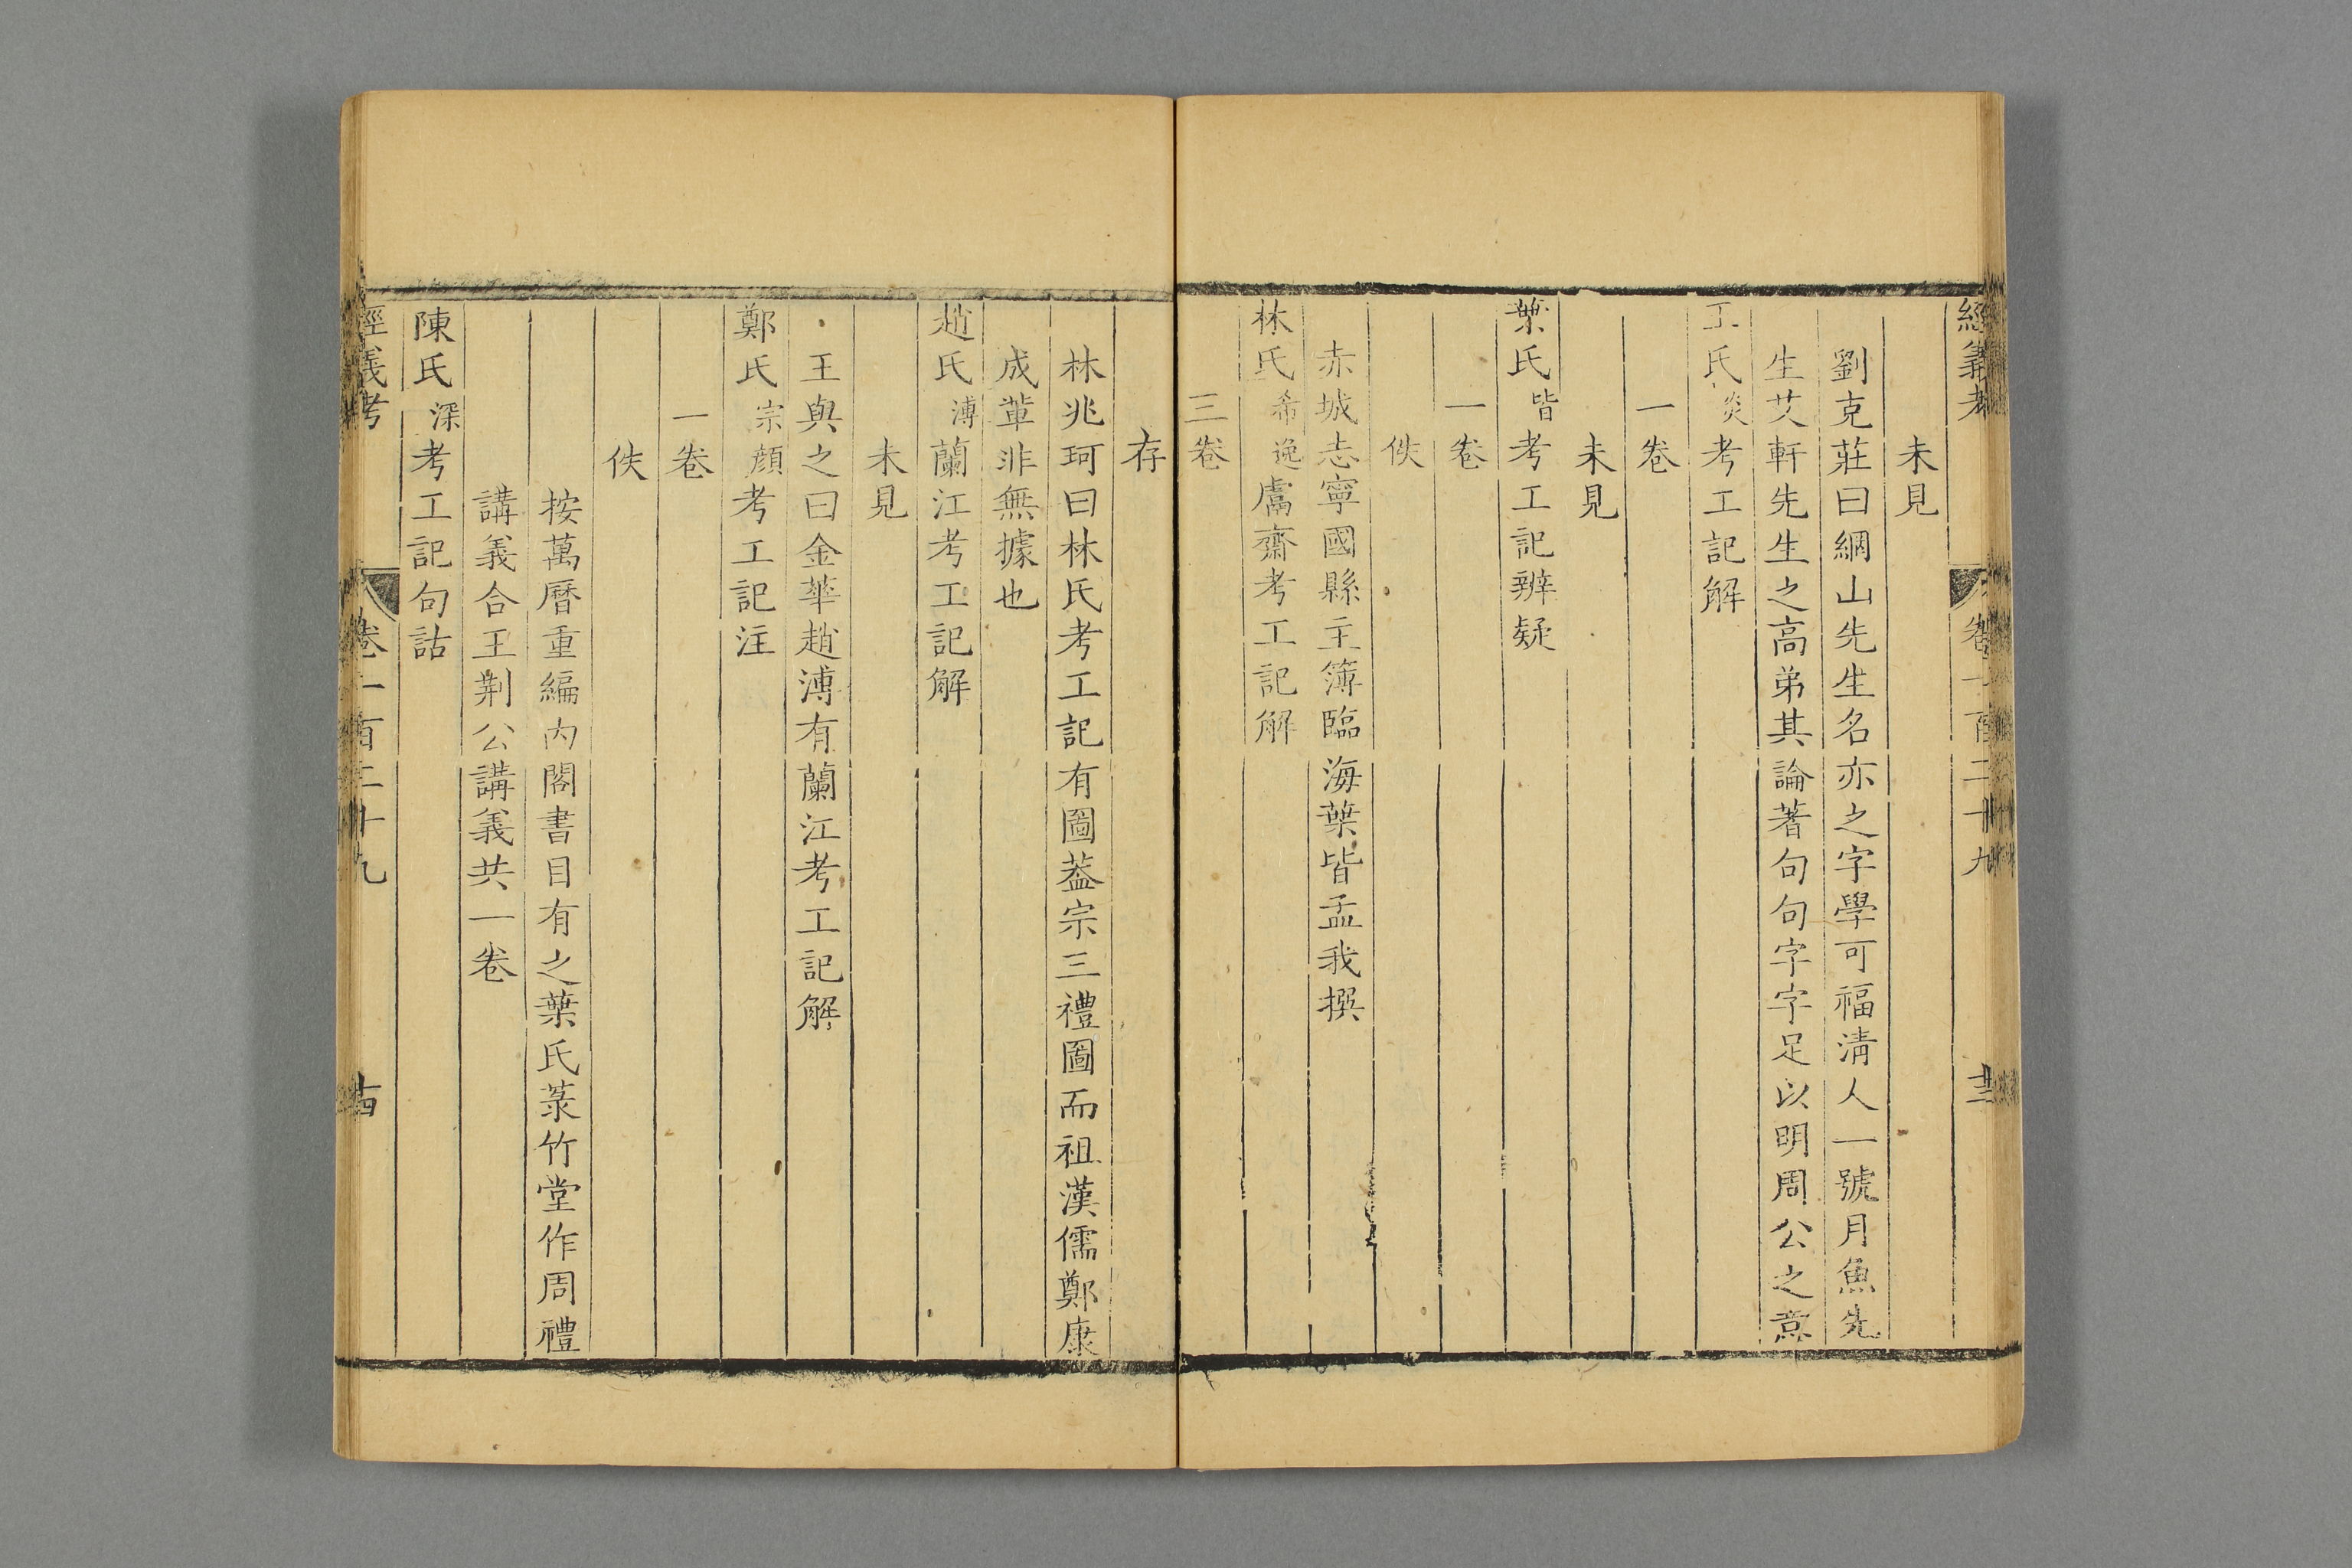 經義考 卷一百二十九 十三
未見
劉克莊曰網山先生名亦之字學可福淸人一號月魚先
生艾軒先生之高弟其論著句句字字足以明周公之意
王氏炎考工記解
一卷
未見
葉氏皆考工記辨疑
一卷
佚
赤城志寧國縣主簿臨海葉皆孟我撰
林氏希逸鬳齋考工記解
三卷
存
林兆珂曰林氏考工記有圖葢宗三禮圖而祖漢儒鄭康
成輩非無據也
趙氏溥蘭江考工記解
未見
王與之曰金華趙溥有蘭江考工記解
鄭氏宗顏考工記注
一卷
佚
按萬曆重編内閣書目有之葉氏菉竹堂作周禮
講義合王荆公講義共一卷
陳氏深考工記句詁
經義考 卷一百二十九 十四